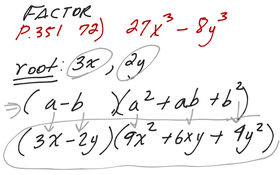 FACTOR
P.351 72) 27x³ - 8y³
root: 3x, 2y
⇒ (a-b)(a² + ab + b²)
(3x - 2y)(9x² + 6xy + 4y²)